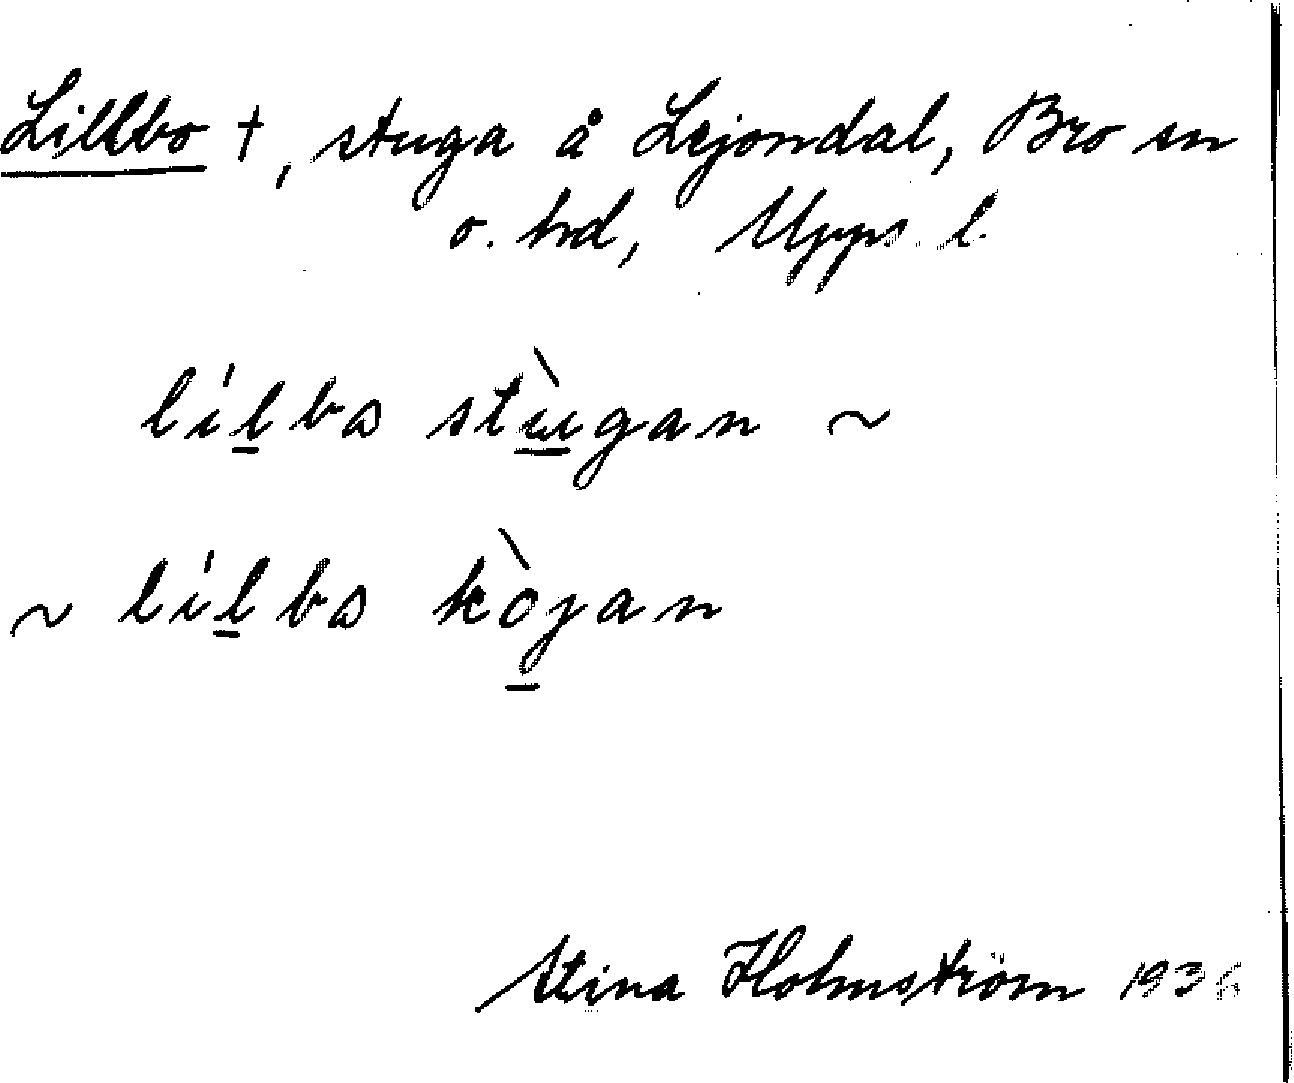 Lillbo †, stuga å Lejondal, Bro sn
o. hd, Upps. l.
lilbs stugan ~
~ lilbs kojan
Stina Holmström 1936